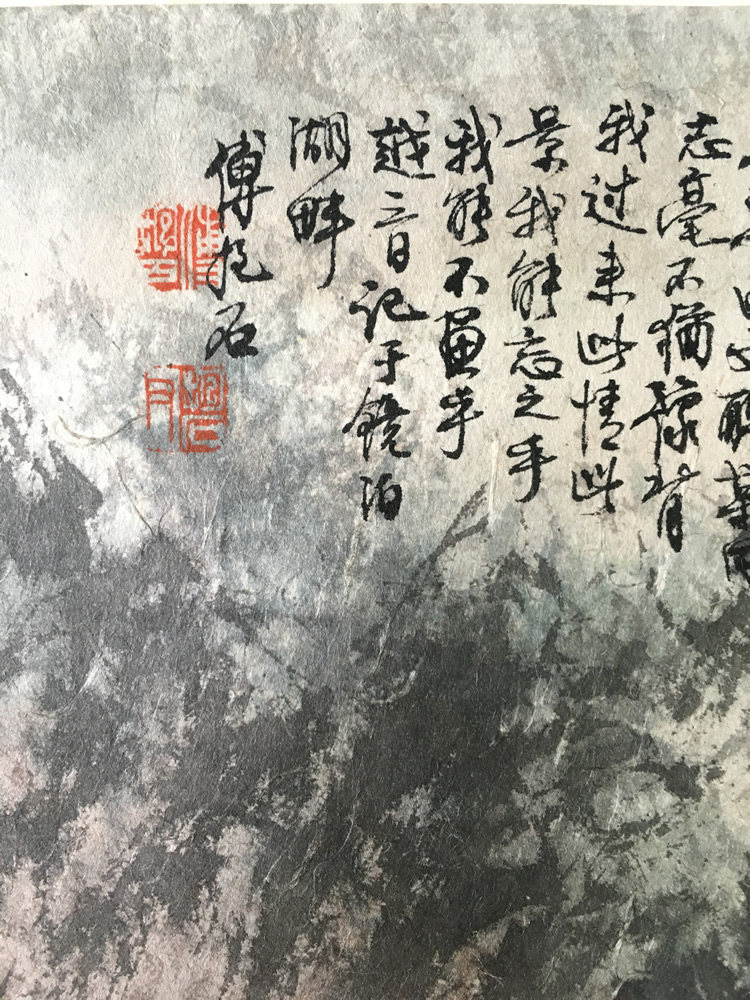 某同
志毫不猶豫背
我过来此情此
景我能忘之乎
我能不画乎
越三日记于镜泊
湖畔
傅抱石